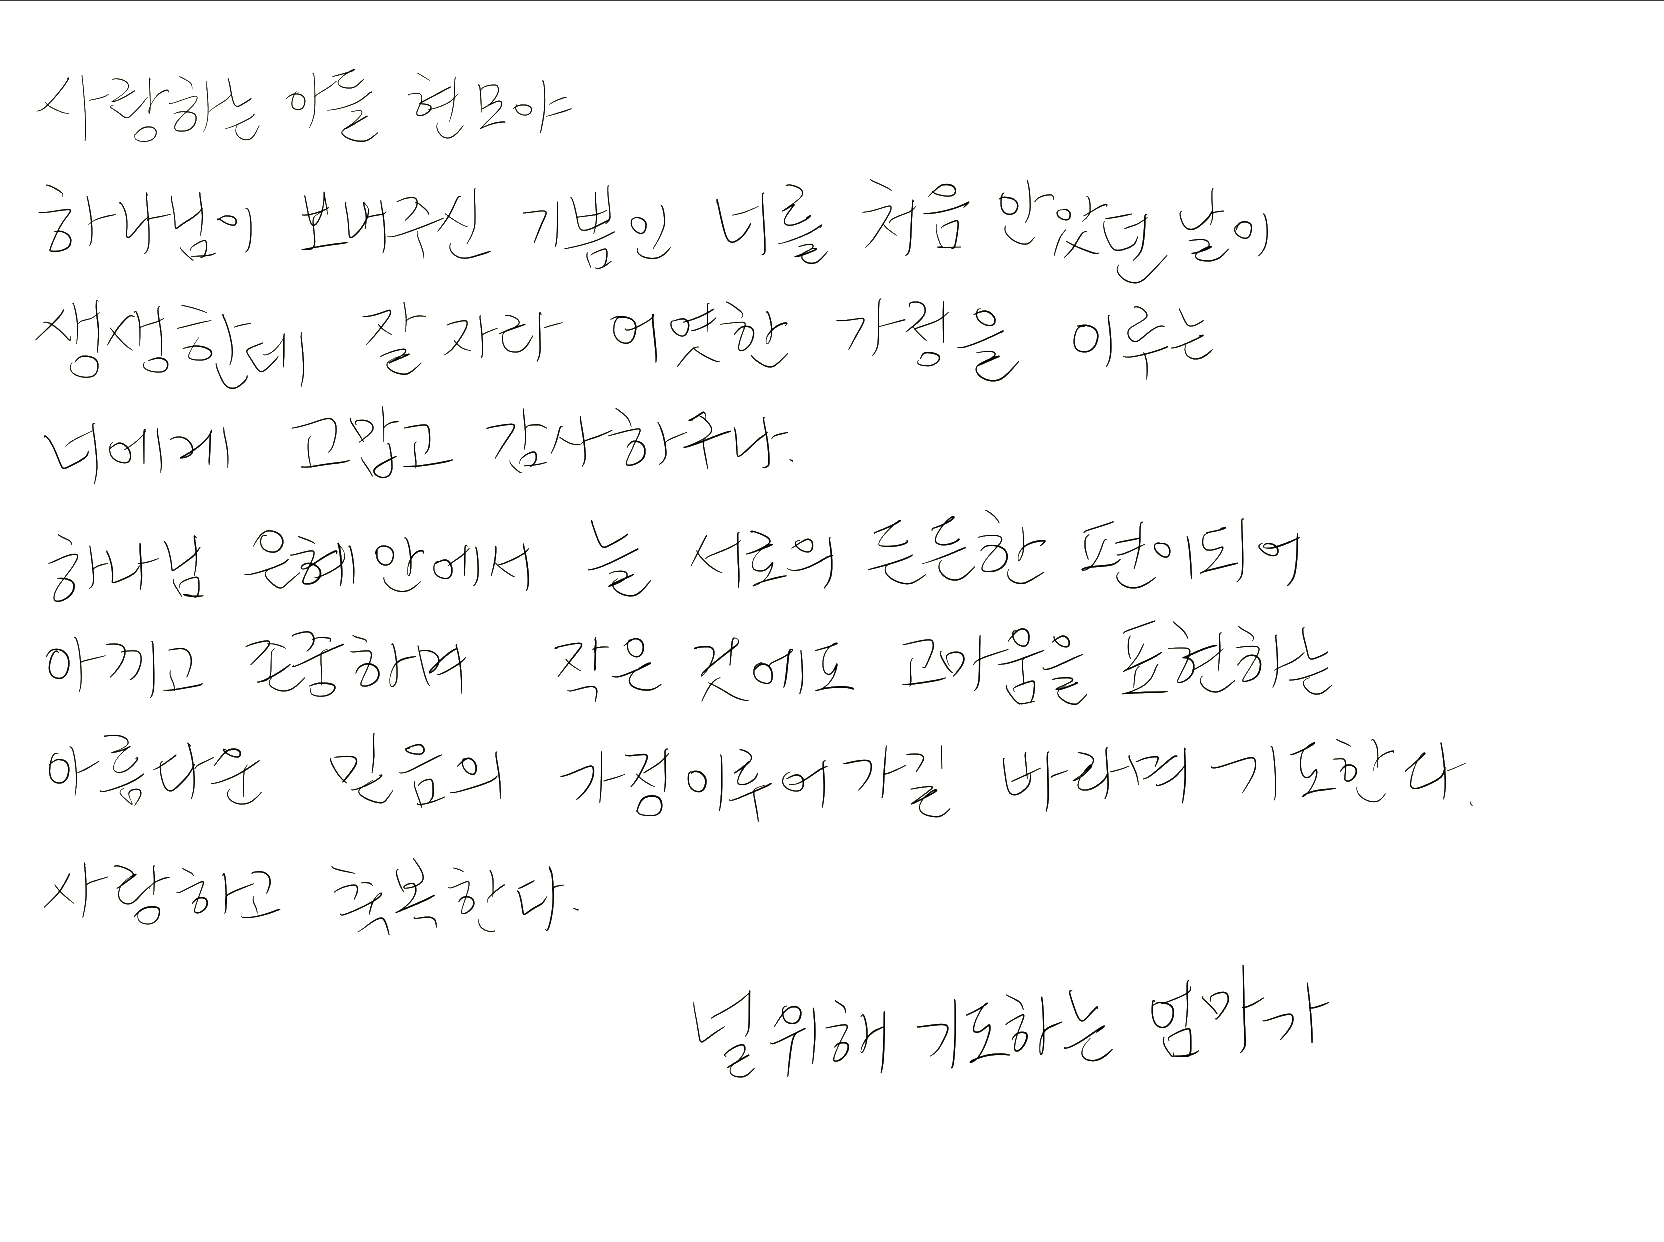 사랑하는 아들 현모야
하나님이 보내주신 기쁨인 너를 처음 안았던 날이
생생한데 잘 자라 어엿한 가정을 이루는
너에게 고맙고 감사하구나.
하나님 은혜안에서 늘 서로의 든든한 편이되어
아끼고 존중하며 작은 것에도 고마움을 표현하는
아름다운 믿음의 가정이루어가길 바라며 기도한다.
사랑하고 축복한다.
널위해 기도하는 엄마가